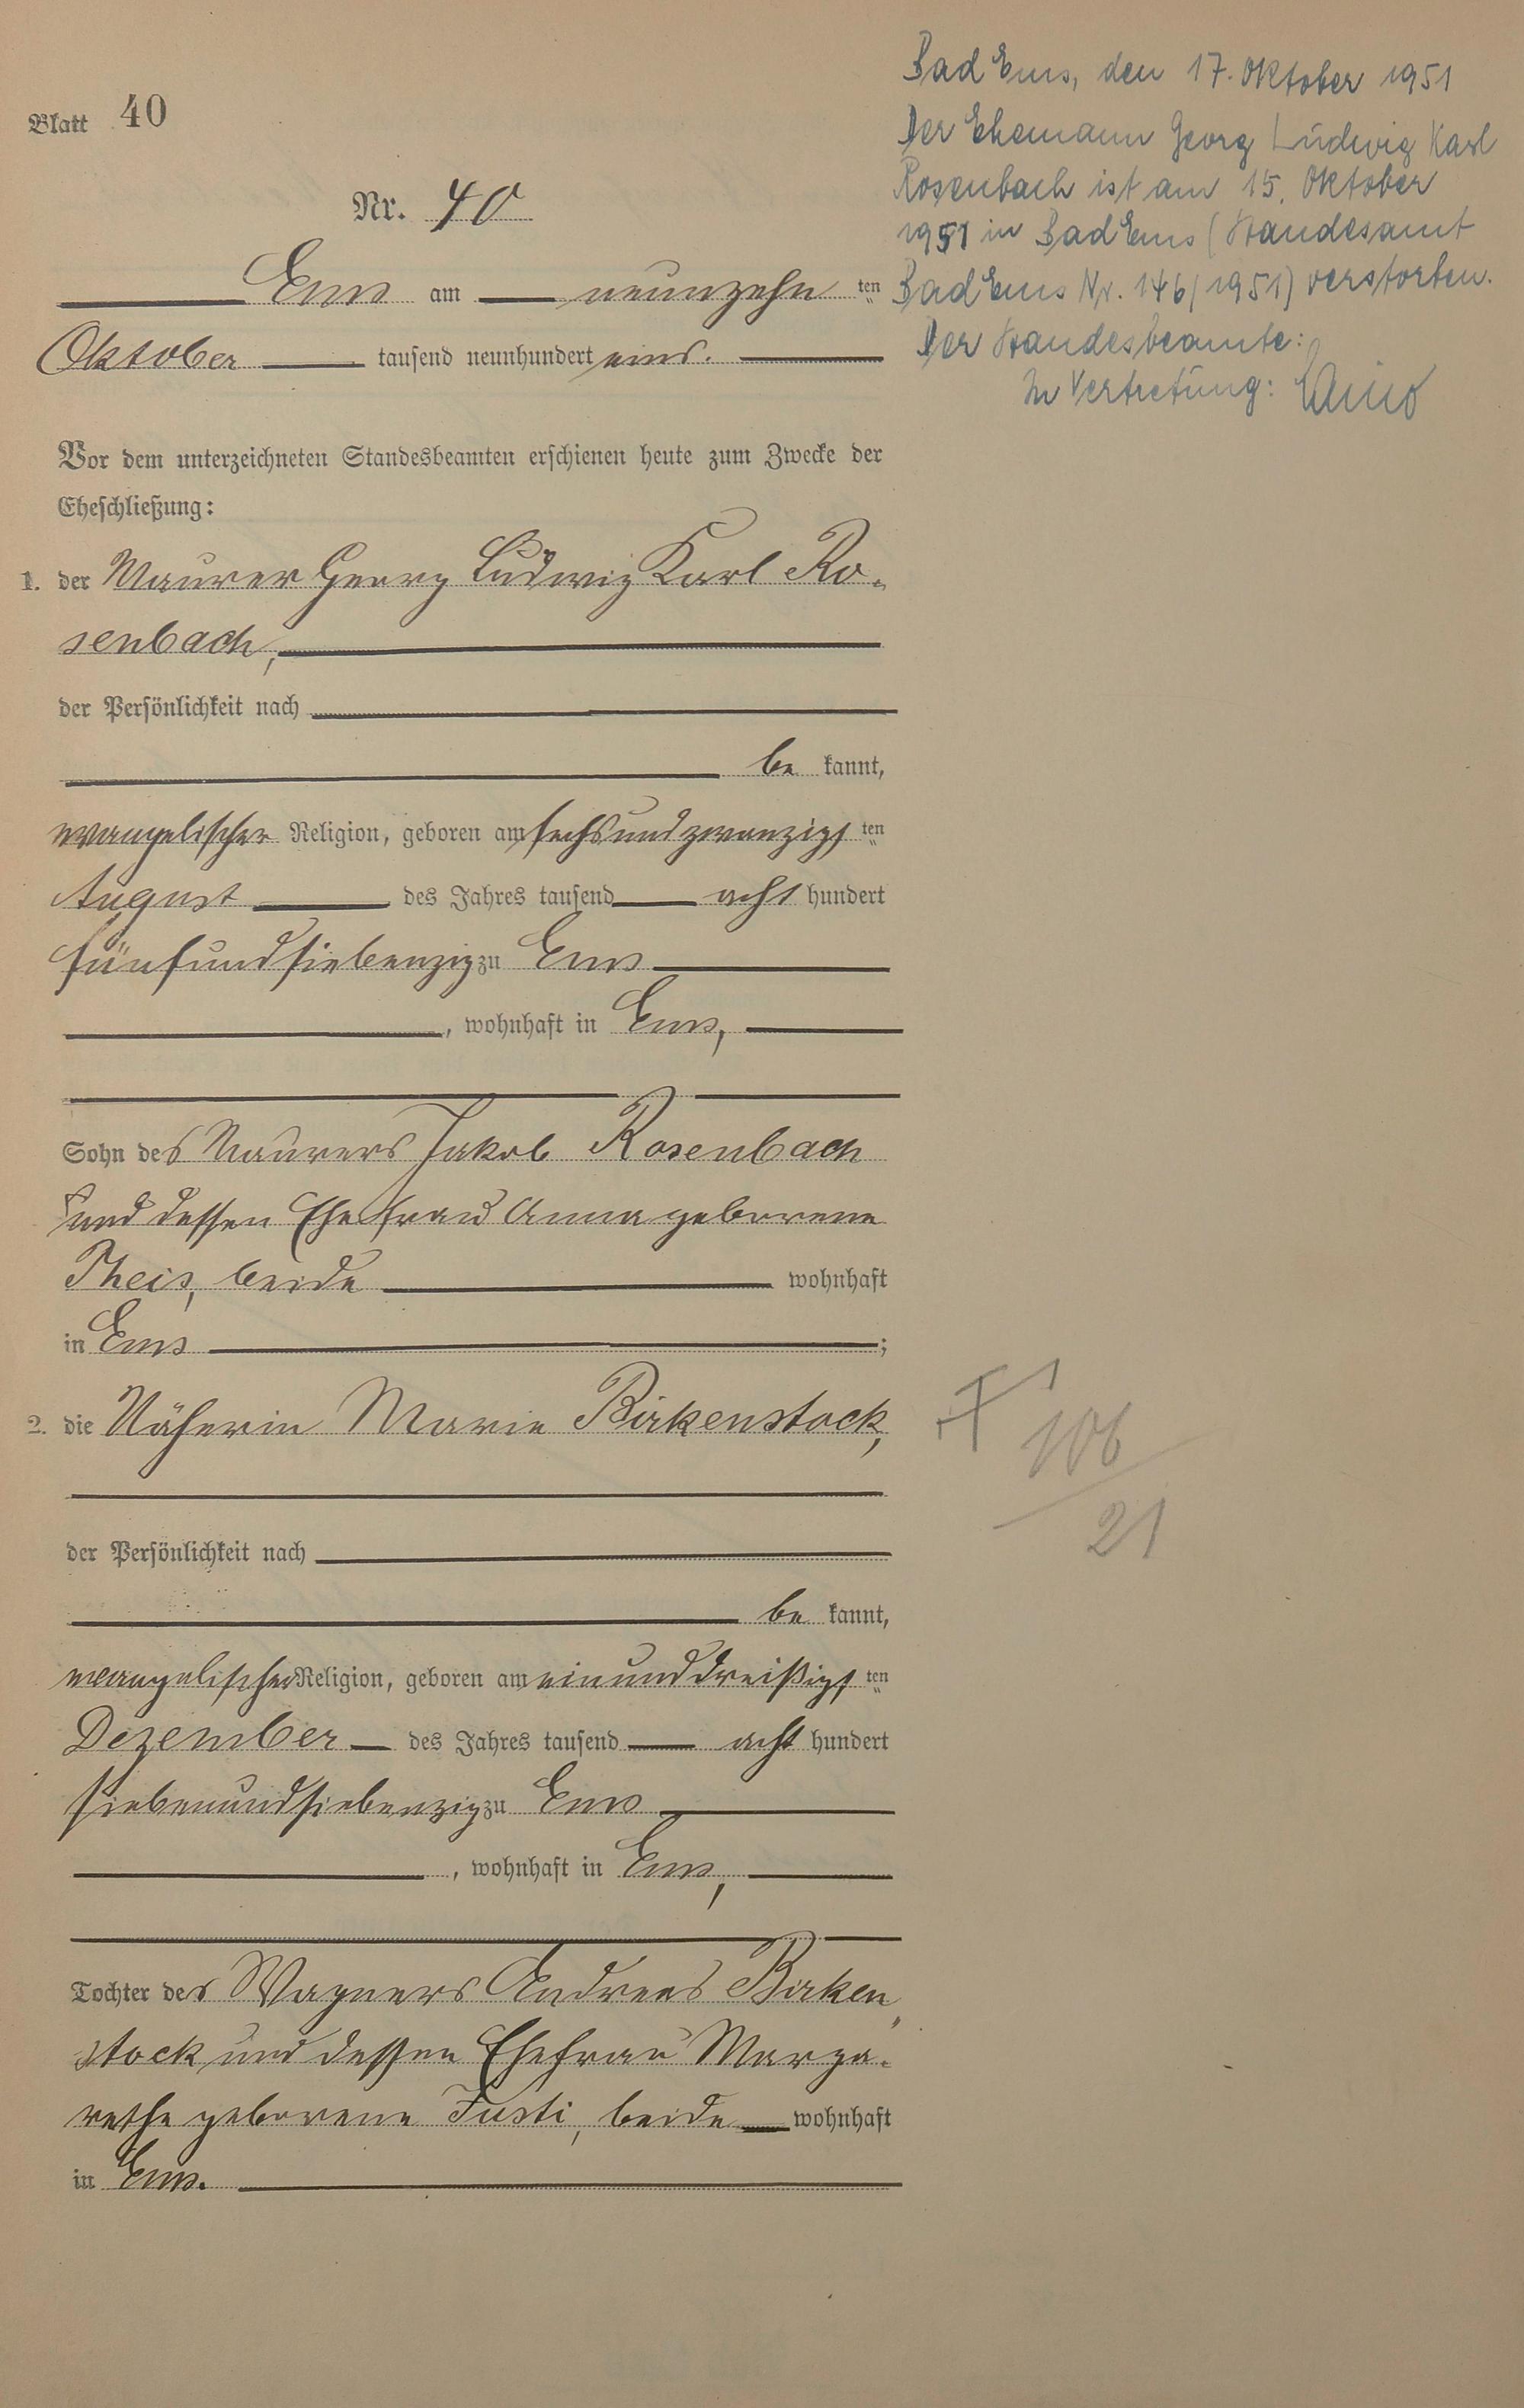 Blatt 40
Nr. 40
Ems am neunzehn ten
Oktober tausend neunhundert eins.
Vor dem unterzeichneten Standesbeamten erschienen heute zum Zwecke der
Eheschließung:
1. der Maurer Georg Ludwig Karl Ro-
senbach,
der Persönlichkeit nach
be kannt,
evangelischer Religion, geboren am sechsundzwanzigs ten
August des Jahres tausend acht hundert
fünfundsiebenzig zu Ems
, wohnhaft in Ems,
Sohn des Maurers Jakob Rosenbach
und dessen Ehefrau Anna geborene
Theis, beide wohnhaft
in Ems ;
2. die Näherin Marie Birkenstock,
der Persönlichkeit nach
be kannt,
evangelischer Religion, geboren am einunddreißigs ten
Dezember des Jahres tausend acht hundert
siebenundsiebenzig zu Ems
, wohnhaft in Ems,
Tochter des Wagners Andreas Birken„
stock und dessen Ehefrau Marga-
rethe geborene Justi, beide wohnhaft
in Ems.
Bad Ems, den 17. Oktober 1951
Der Ehemann Georg Ludwig Karl
Rosenbach ist am 15. Oktober
1951 in Bad Ems (Standesamt
Bad Ems Nr. 146/1951) verstorben.
Der Standesbeamte:
In Vertretung:
106
21